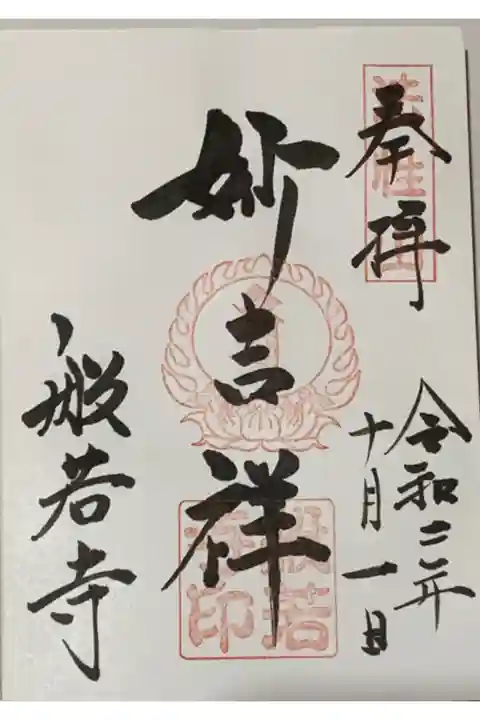 奉拝
法性山
令和二年
十月一日
妙吉祥
般若
寺印
般若寺